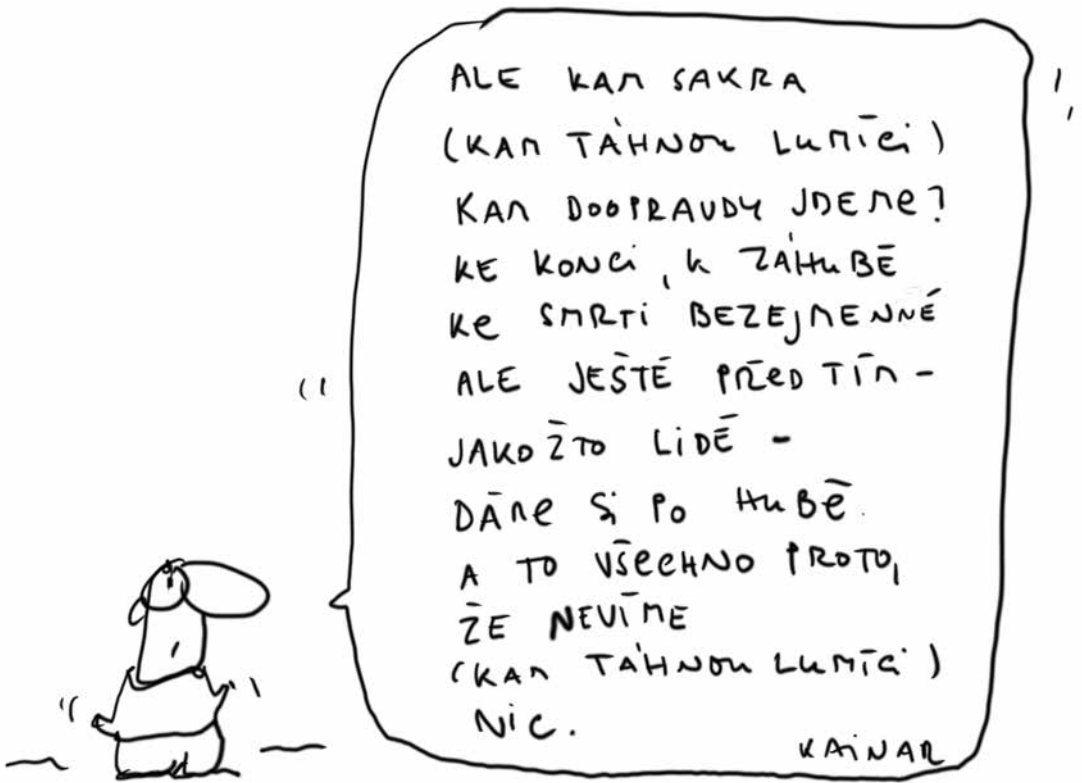 ALE KAM SAKRA
(KAM TÁHNOU LUMÍCI)
KAM DOOPRAVDY JDEME?
KE KONCI, K ZÁHUBĚ
KE SMRTI BEZEJMENNÉ
ALE JEŠTĚ PŘED TÍM -
JAKOŽTO LIDÉ -
DÁME SI PO HUBĚ.
A TO VŠECHNO PROTO,
ŽE NEVÍME
(KAM TÁHNOU LUMÍCI)
NIC.
KAINAR